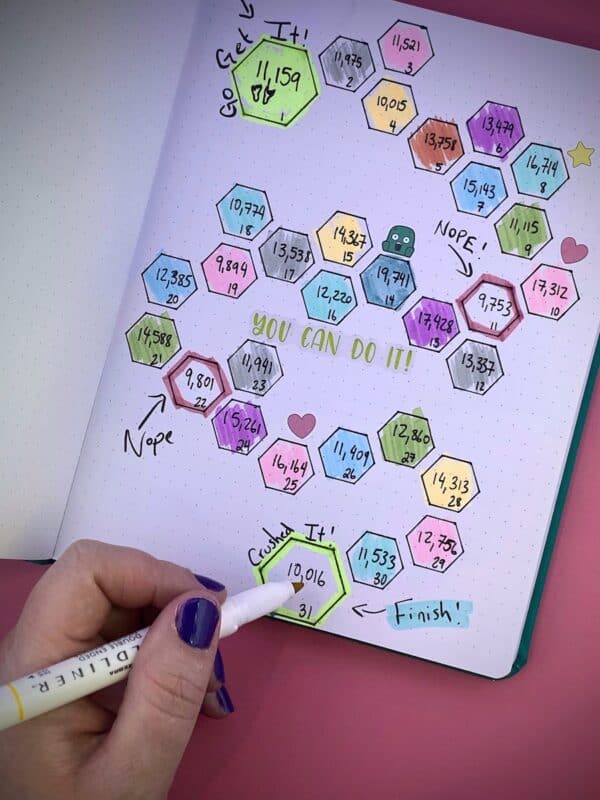 Go Get It!
11,159
1
11,975
2
11,521
3
10,015
4
13,758
5
13,479
6
15,143
7
16,714
8
11,115
9
17,312
10
NOPE!
9,753
11
13,337
12
17,428
13
19,741
14
14,367
15
12,220
16
13,538
17
10,774
18
9,894
19
12,385
20
14,588
21
9,801
22
Nope
11,941
23
YOU CAN DO IT!
15,261
24
16,164
25
11,409
26
12,860
27
14,313
28
12,756
29
11,533
30
Crushed It!
10,016
31
Finish!
LDLINER
DOUBLE ENDED